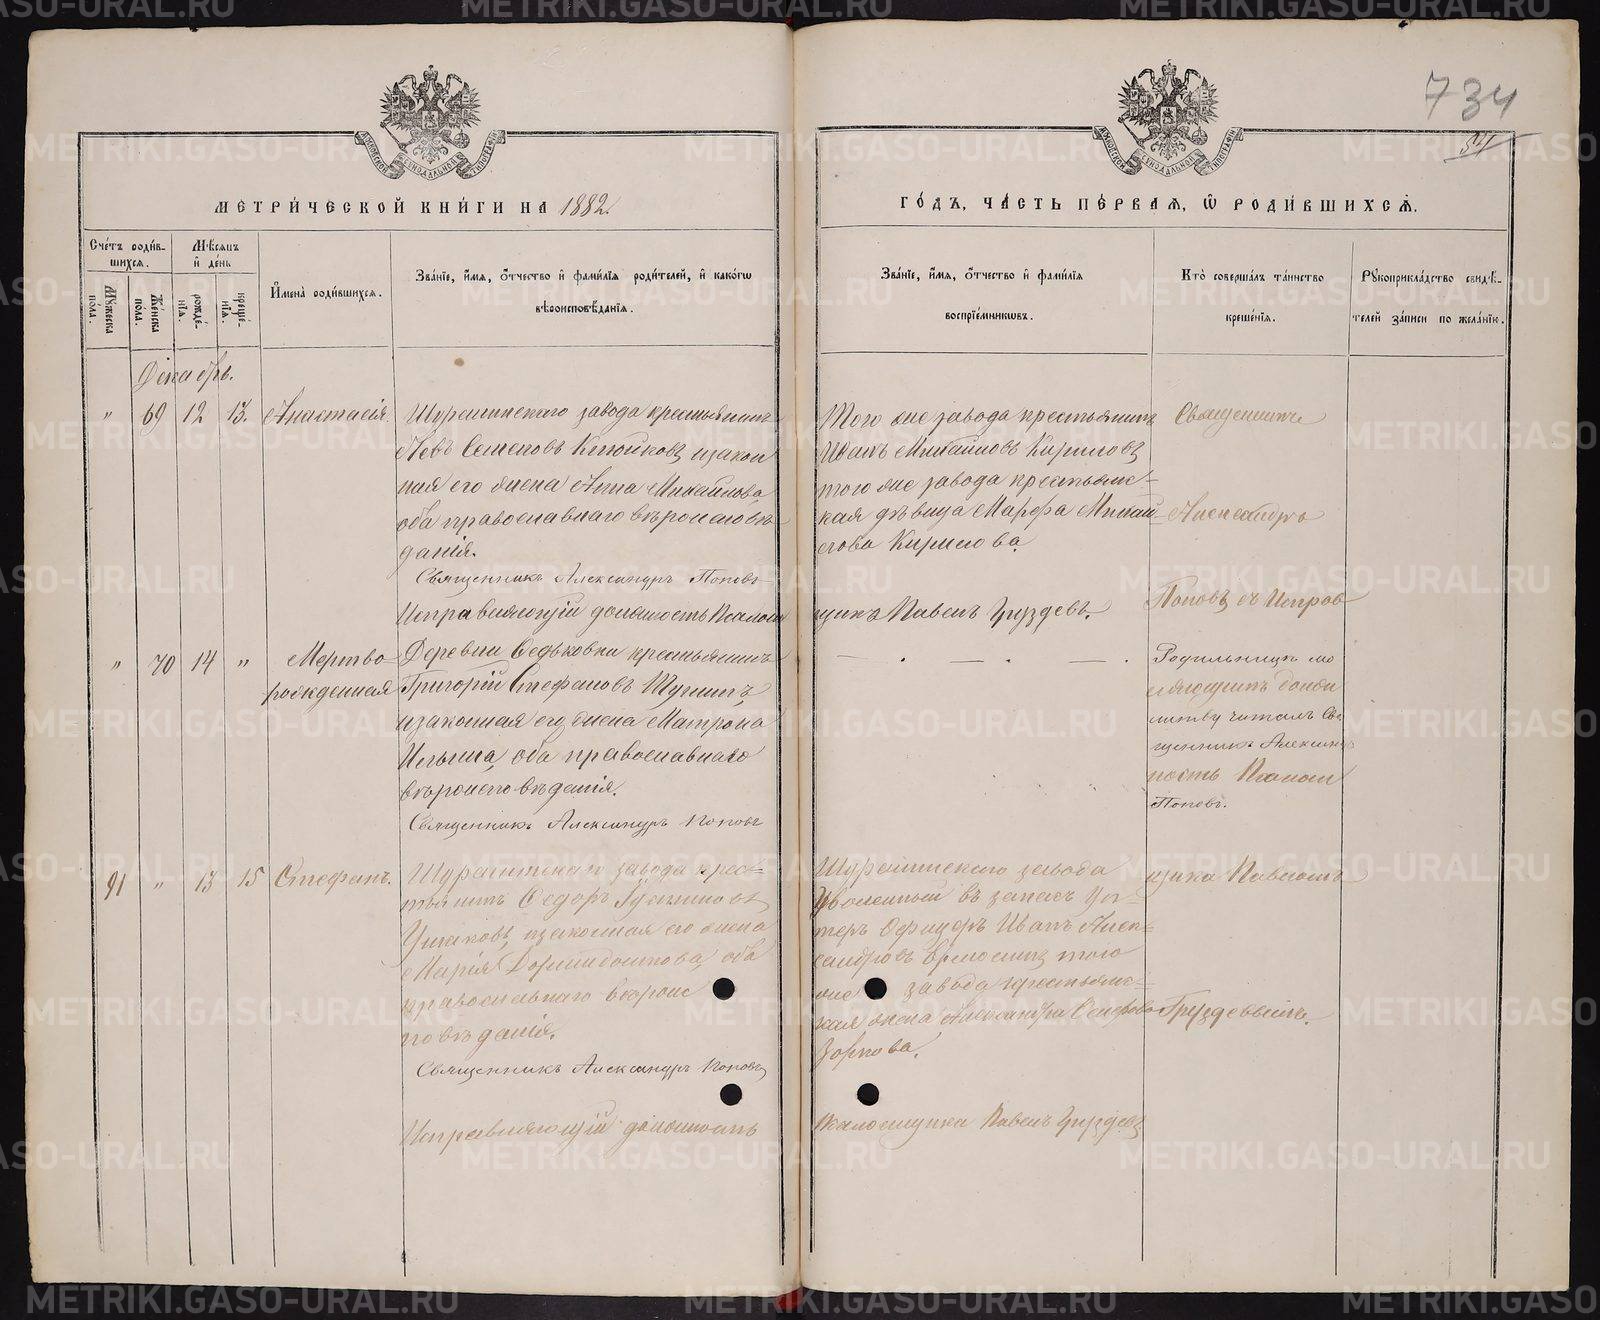 734
54
МЕТРИ́ЧЕСКОЙ КНИ́ГИ НА 1882.
ГО́ДЪ, ЧА́СТЬ ПЕ́РВАЯ, Ѿ РОДИ́ВШИХСѦ.
Сче́тъ роди́в-
шихсѧ.
Мѣ́сѧцъ
и҆ де́нь
Мꙋ́жеска
по́ла.
Же́нска
по́ла.
рожде́-
нїѧ.
креще́-
нїѧ.
И҆мена̀ роди́вшихсѧ.
Зва́нїе, и҆́мѧ, ѻ҆́тчество и҆ фами́лїѧ роди́телей, и҆ како́гѡ
вѣроисповѣ́данїѧ.
Зва́нїе, и҆́мѧ, ѻ҆́тчество и҆ фами́лїѧ
воспрїе́мникѡвъ.
Кто̀ соверша́лъ та́инство
креще́нїѧ.
Рꙋкоприкла́дство свидѣ́-
телей за́писи по жела́нїю.
Декабрь.
" 69 12 13. Анастасія.
Шуралинскаго завода крестьянинъ
Левъ Семеновъ и закон
ная его жена Анна Михайлова,
оба православнаго вѣроисповѣ
данія.
Священникъ Александръ Поповъ
Исправляющій должность Псалом
Того же завода крестьянинъ
Иванъ Михайловъ Кириловъ,
того же завода крестьянс-
кая дѣвица Марфа Михай-
лова Кирилова.
щика Павелъ Груздевъ.
Священникъ
Александръ
Поповъ съ Исправ
" 70 14 " Мертво-
рожденная
Деревни Федьковки крестьянинъ
Григорій Стефановъ Шунинъ,
и законная его жена Матрона
Ильина, оба православнаго
вѣроисповѣданія.
Священникъ Александръ Поповъ
— . — . — .
Родильницѣ мо
ляющимъ должн
литву читалъ Свя
щенникъ Александръ
ность Псалом
Поповъ.
91 " 13 15 Стефанъ.
Шуралинскаго завода крес-
тьянинъ Федоръ
Ушаковъ, и законная его жена
Марія Дормидонтова, оба
православнаго вѣроис
повѣданія.
Священникъ Александръ Поповъ
Исправляющій должность
Шуралинскаго завода
Уволенный въ запасъ Ун-
теръ Офицеръ Иванъ Алек-
сандровъ того
же завода крестьянс-
кая жена Александра
Зорнова.
Псаломщика Павелъ Груздевъ
щика Павломъ
Груздевымъ.
METRIKI.GASO-URAL.RU